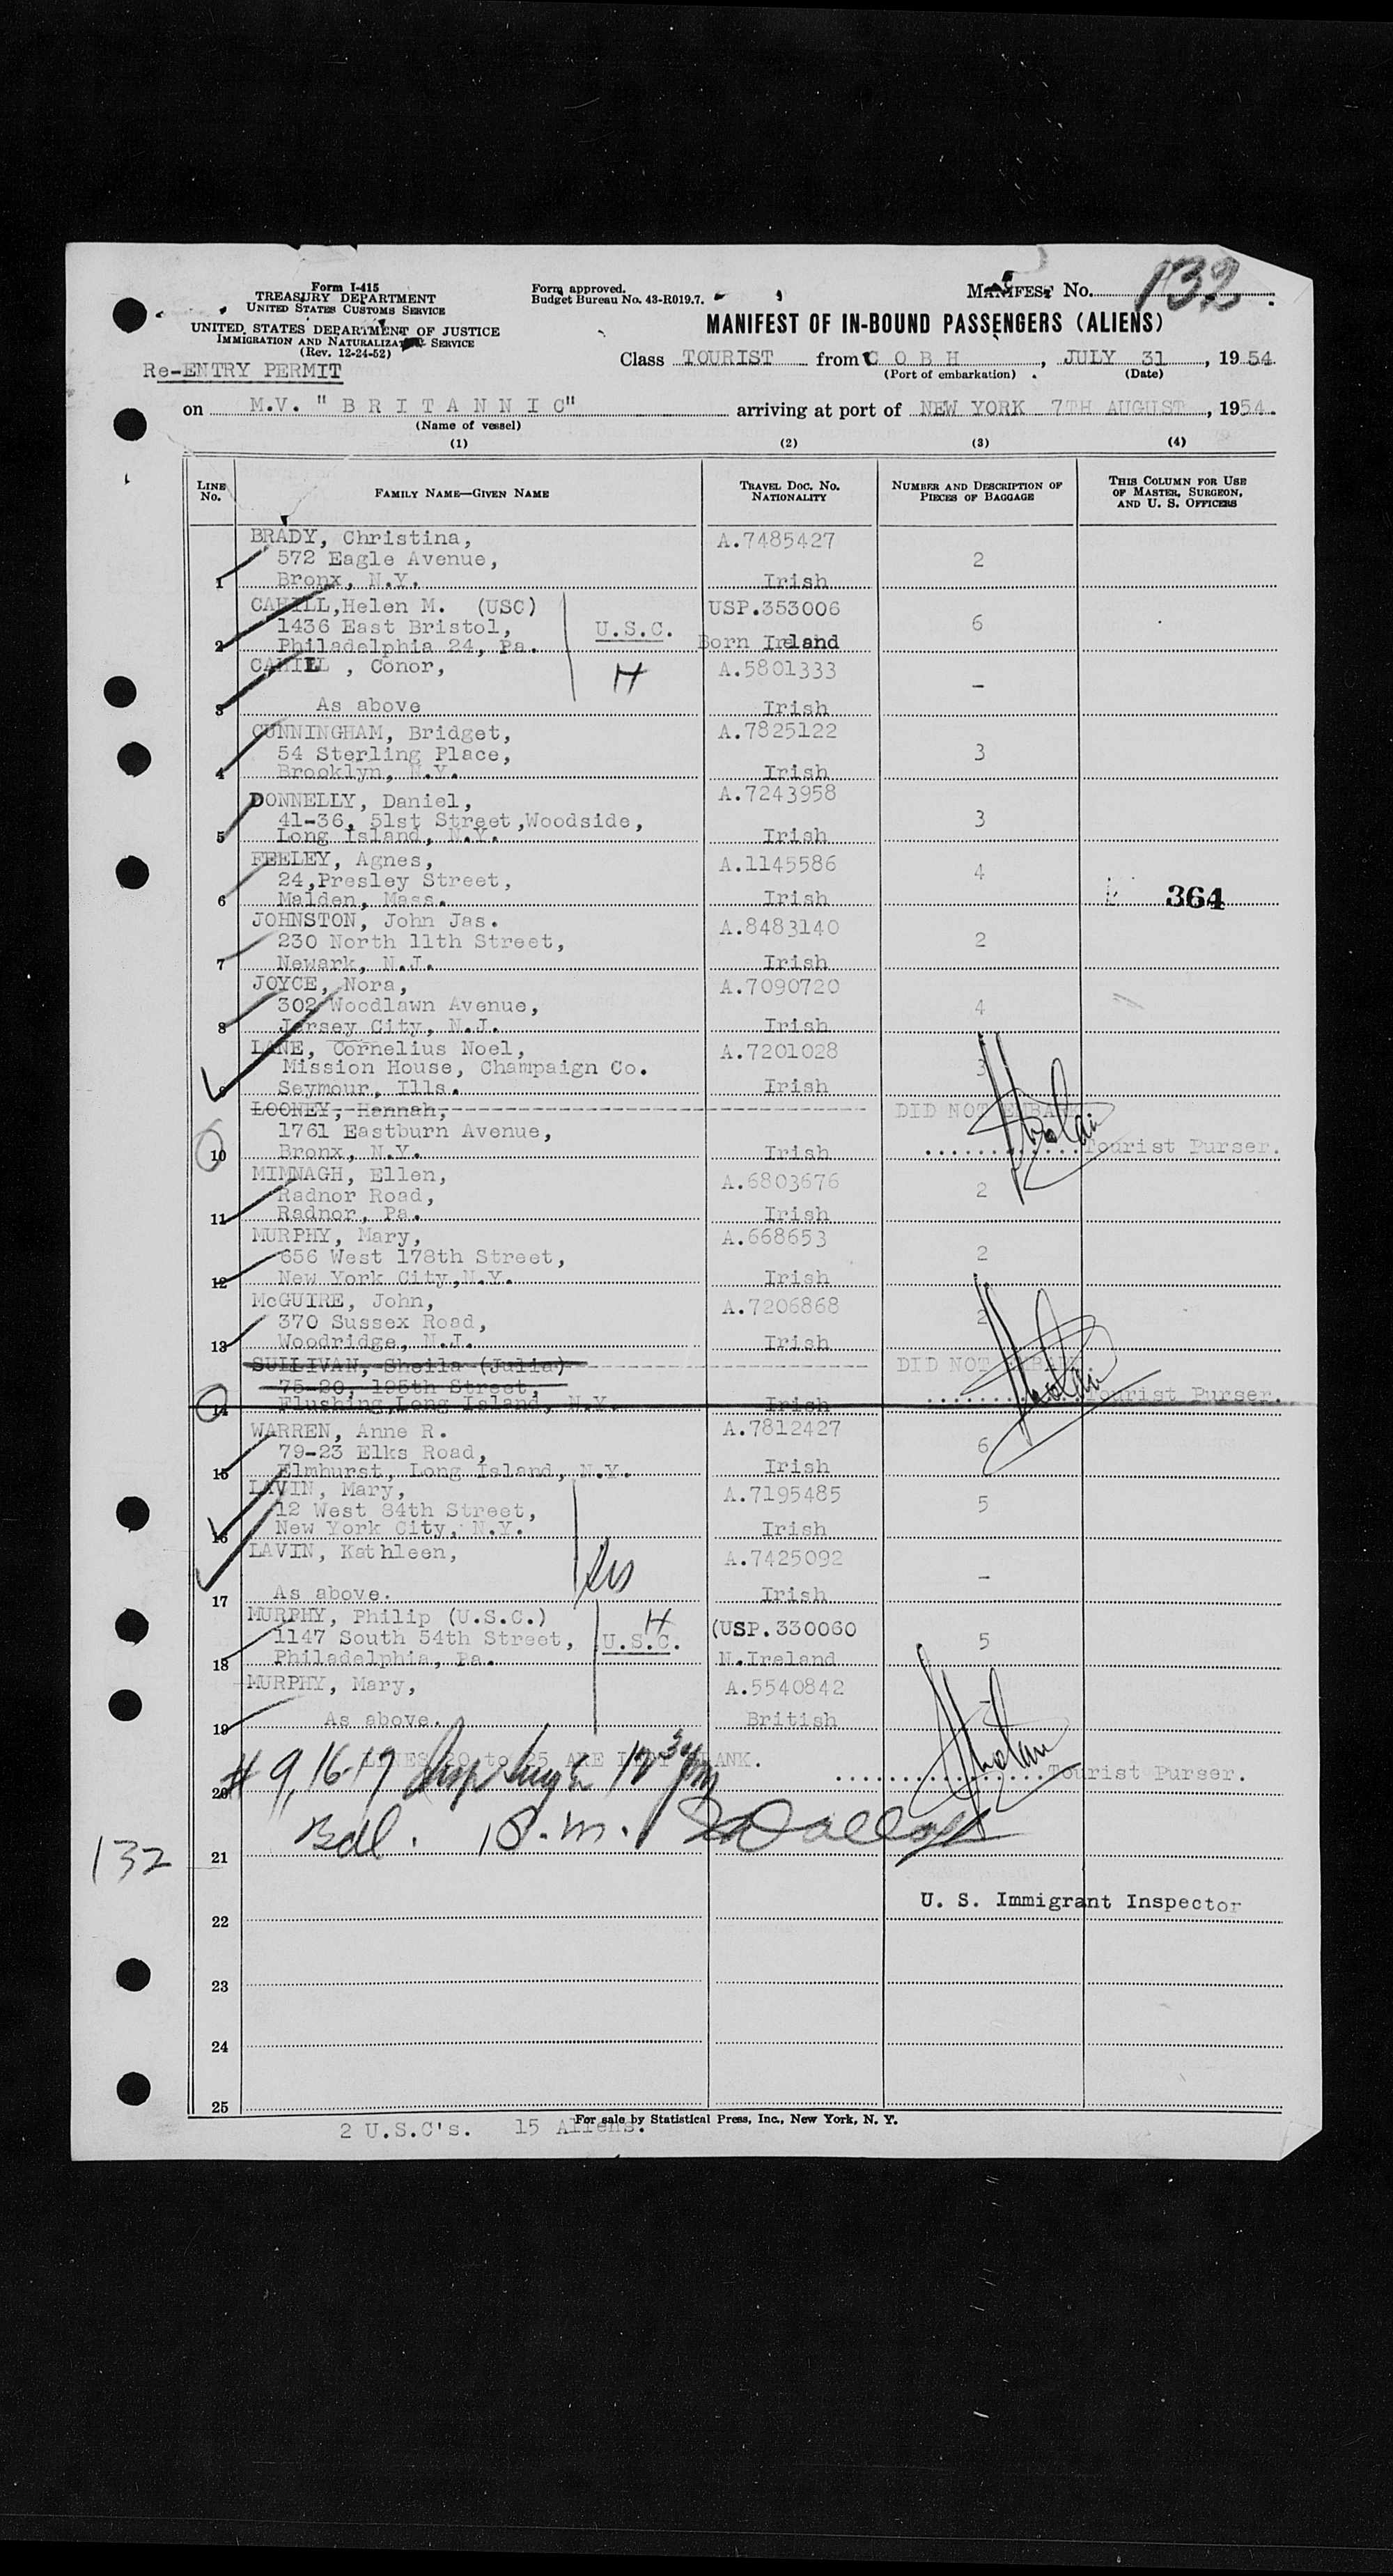 Form I-415
TREASURY DEPARTMENT
UNITED STATES CUSTOMS SERVICE
UNITED STATES DEPARTMENT OF JUSTICE
IMMIGRATION AND NATURALIZATION SERVICE
(Rev. 12-24-52)
Re-ENTRY PERMIT
Form approved.
Budget Bureau No. 43-R019.7.
MANIFEST No. 132
MANIFEST OF IN-BOUND PASSENGERS (ALIENS)
Class TOURIST from C O B H, JULY 31, 1954
(Port of embarkation) (Date)
on M.V. "B R I T A N N I C" arriving at port of NEW YORK 7TH AUGUST, 1954.
(Name of vessel)
(1) (2) (3) (4)
LINE No. FAMILY NAME—GIVEN NAME TRAVEL DOC. No. NATIONALITY NUMBER AND DESCRIPTION OF PIECES OF BAGGAGE THIS COLUMN FOR USE OF MASTER, SURGEON, AND U. S. OFFICERS
BRADY, Christina, A.7485427
572 Eagle Avenue, 2
1 Bronx, N.Y. Irish
CAHILL, Helen M. (USC) USP.353006
1436 East Bristol, U.S.C. 6
2 Philadelphia 24, Pa. Born Ireland
CAHILL , Conor, H A.5801333
-
3 As above Irish
CUNNINGHAM, Bridget, A.7825122
54 Sterling Place, 3
4 Brooklyn, N.Y. Irish
DONNELLY, Daniel, A.7243958
41-36, 51st Street,Woodside, 3
5 Long Island, N.Y. Irish
FEELEY, Agnes, A.1145586
24,Presley Street, 4
6 Malden, Mass. Irish 364
JOHNSTON, John Jas. A.8483140
230 North 11th Street, 2
7 Newark, N.J. Irish
JOYCE, Nora, A.7090720
302 Woodlawn Avenue, 4
8 Jersey City, N.J. Irish
LANE, Cornelius Noel, A.7201028
Mission House, Champaign Co. 3
9 Seymour, Ills. Irish
LOONEY, Hannah, DID NOT EMBARK
1761 Eastburn Avenue,
10 Bronx, N.Y. Irish Tourist Purser.
MIMNAGH, Ellen, A.6803676
Radnor Road, 2
11 Radnor, Pa. Irish
MURPHY, Mary, A.668653
656 West 178th Street, 2
12 New York City,N.Y. Irish
McGUIRE, John, A.7206868
370 Sussex Road, 2
13 Woodridge, N.J. Irish
SULLIVAN, Sheila (Julia) DID NOT EMBARK
75-20, 195th Street,
14 Flushing,Long Island, N.Y. Irish Tourist Purser.
WARREN, Anne R. A.7812427
79-23 Elks Road, 6
15 Elmhurst, Long Island, N.Y. Irish
LAVIN, Mary, A.7195485
12 West 84th Street, 5
16 New York City, N.Y. Irish
LAVIN, Kathleen, A.7425092
-
17 As above. Irish
MURPHY, Philip (U.S.C.) H (USP.330060
1147 South 54th Street, U.S.C. 5
18 Philadelphia, Pa. N.Ireland
MURPHY, Mary, A.5540842
19 As above. British
LINES 20 to 25 ARE LEFT BLANK.
# 9, 16-17
20 Tourist Purser.
132
21
U. S. Immigrant Inspector
22
23
24
25
For sale by Statistical Press, Inc., New York, N. Y.
2 U.S.C's. 15 Aliens.